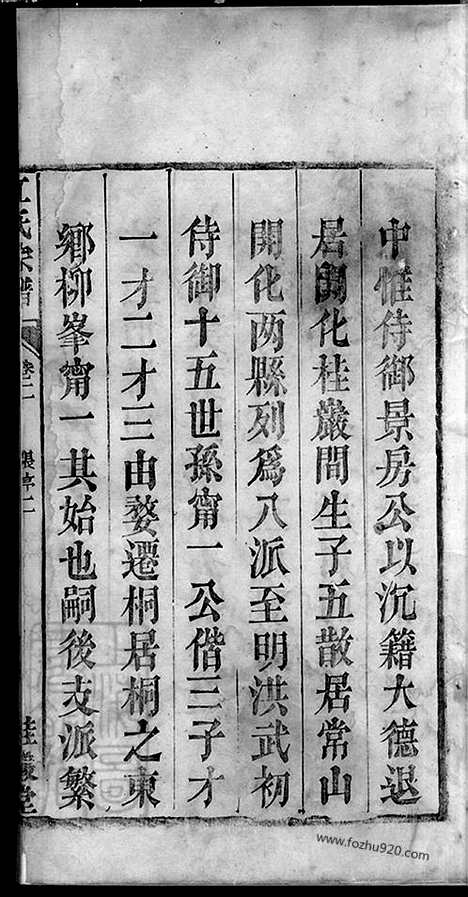 中惟侍御景房公以沉籍大德退
居開化桂巖問生子五散居常山
開化两縣列爲八派至明洪武初
侍御十五世孫甯一公偕三子才
一才二才三由婺遷桐居桐之東
鄉柳峯甯一其始也嗣後支派繁
江氏宗譜
卷二
二
堂
www.fozhu920.com